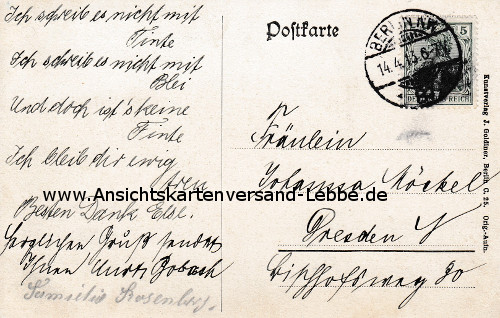 Ich schreib es nicht mit
Tinte
Ich schreib es nicht mit
Blei
Und doch ist's keine
Finte
Ich bleib dir ewig
treu
Besten Dank Else.
Herzlichen Gruß sendet
Ihnen Curt
Familie Rosenberg.
Postkarte
BERLIN N.W.
14.4.13.6-7N.
5
DEUTSCHES REICH
Fräulein
Johanna Möckel
Dresden
Bischofsweg
Kunstverlag J. Goldiner, Berlin C. 25. Orig.-Aufn.
www.Ansichtskartenversand-Lebbe.de